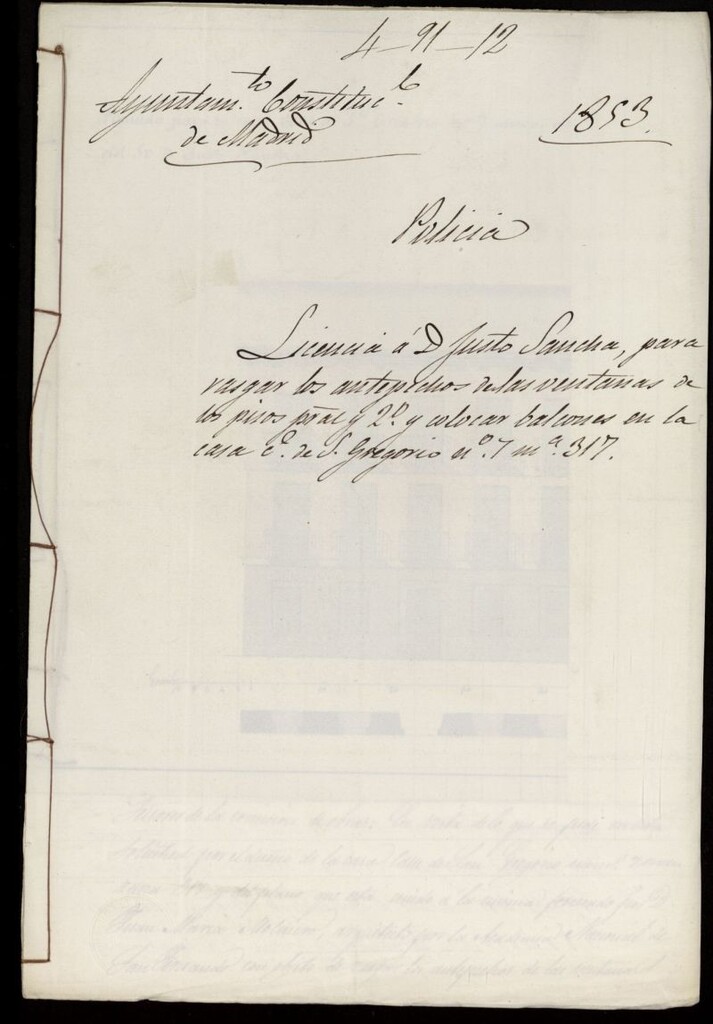 4-91-12
Ayuntam.to Constituc.l
de Madrid
1853.
Policia
Licencia á D Justo Sancha, para
rasgar los antepechos de las ventanas de
los pisos pral y 2.º y colocar balcones en la
casa C.e de S. Gregorio n.º 7 m.a 317.